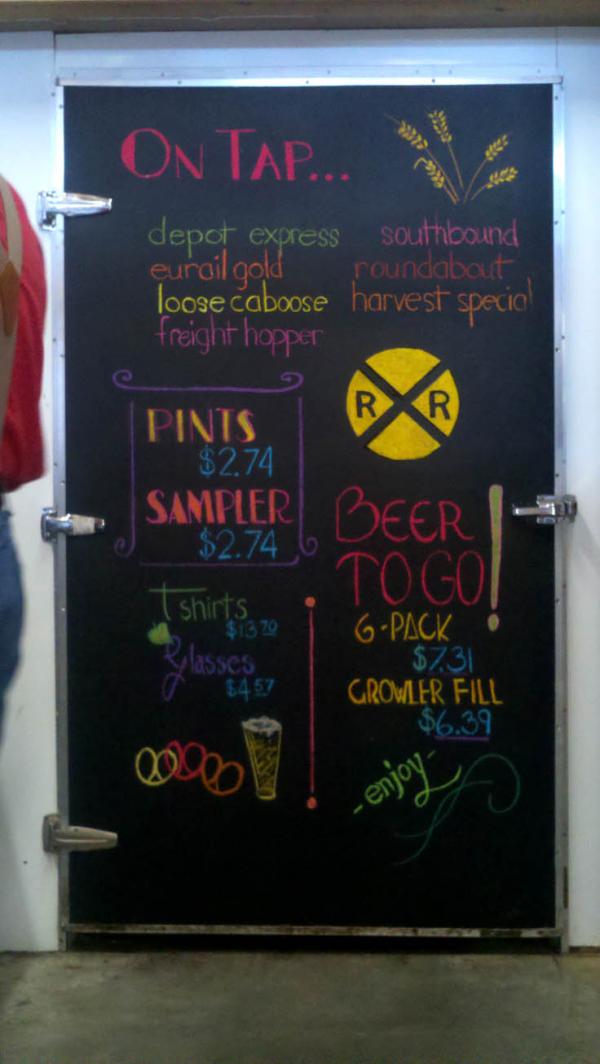 On Tap...
depot express
eurail gold
loose caboose
freight hopper
southbound
roundabout
harvest special
R R
PINTS
$2.74
SAMPLER
$2.74
BEER
TO GO!
6-PACK
$7.31
GROWLER FILL
$6.39
T shirts
$13.70
Glasses
$4.57
-enjoy-